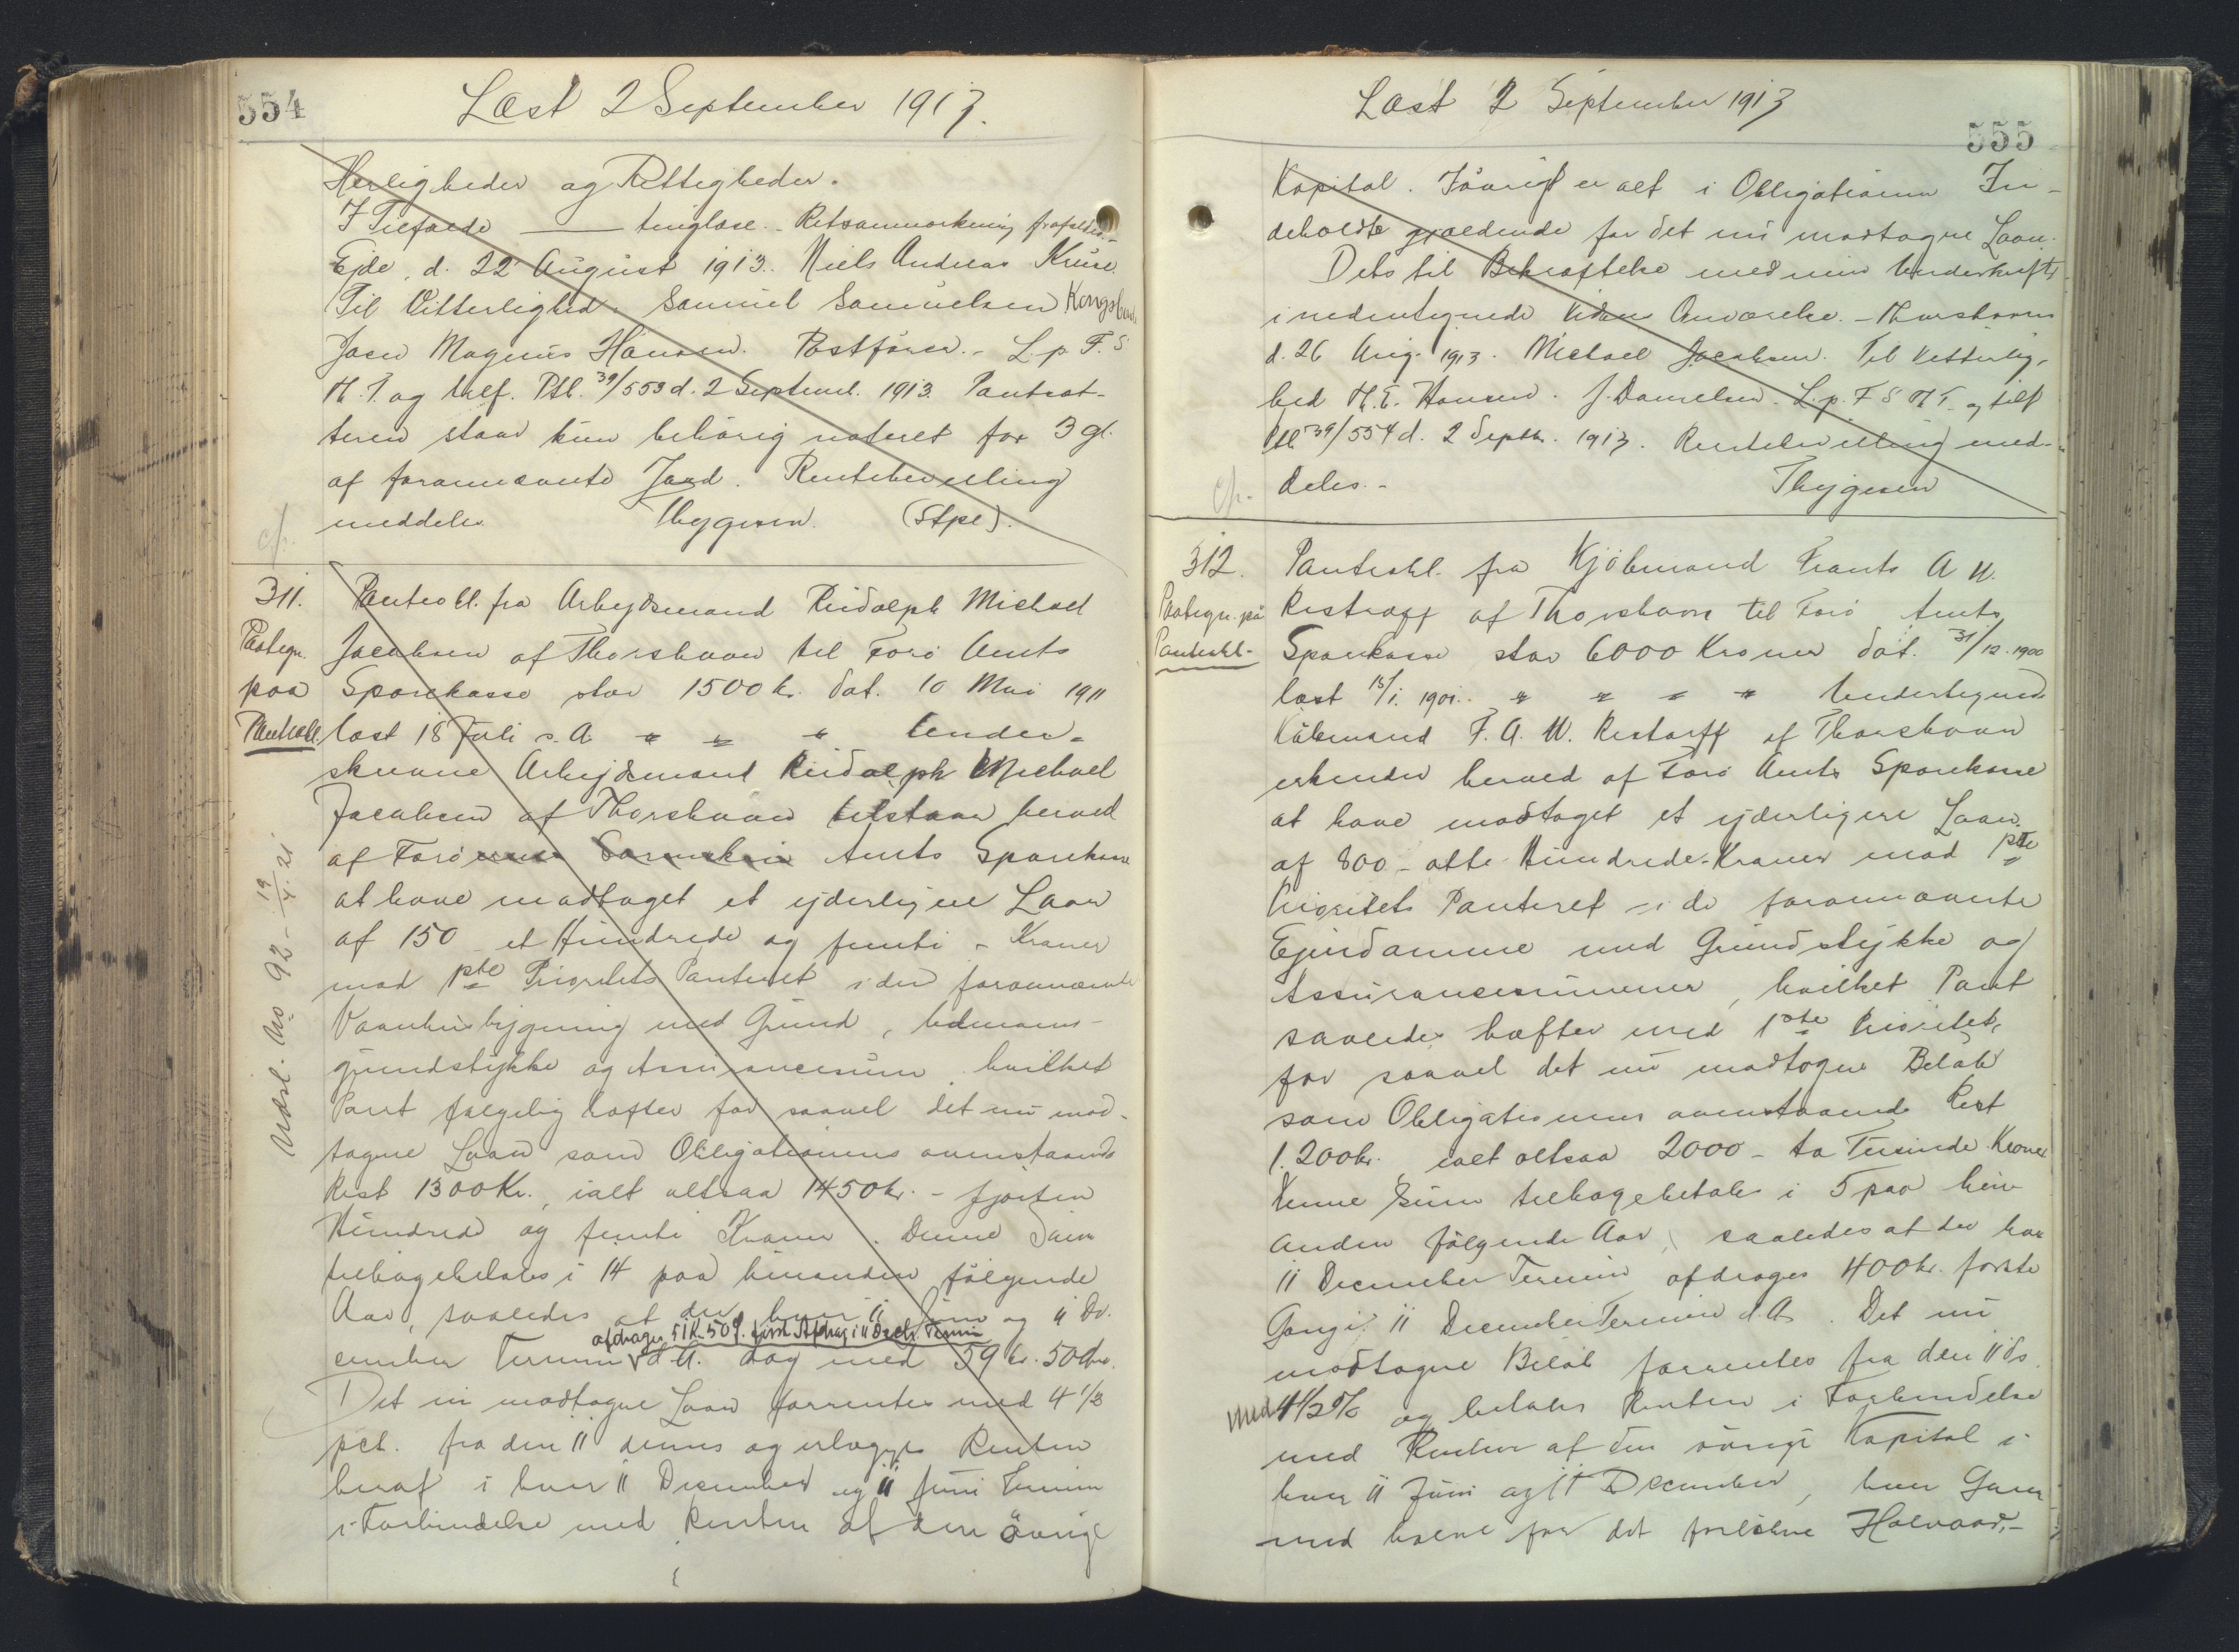 554
Læst 2 September 1913.
Herligheder og Rettigheder.
I Tilfælde — tinglæse. Retsanmærkning frafaldes.-
Ejde, d. 22 August 1913. Niels Andreas Kruse
Til Vitterlighed. Samuel Samuelsen
Joen Magnus Hansen. Postfører. - L. p. F. S
H. T. og tilf. Ptl. 39/553 d. 2 Septemb. 1913. Pantsæt-
teren staar kun behørig noteret for 3 gl.
af forannævnte Jord. Rentebevilling
meddeles. Thygesen. (Stpl).
cfr.
311.
Paategn.
paa
Panteobl.
Panteobl. fra Arbejdsmand Rudolph Michael
Jacobsen af Thorshavn til Færø Amts
Sparekasse stor 1500 kr. dat. 10 Mai 1911
læst 18 Juli s. A. " " " Under-
skrevne Arbejdsmand Rudolph Michael
Jacobsen af Thorshavn tilstaar herved
af Færø Amts Sparekasse
at have modtaget et yderligere Laan
af 150 - et Hundrede og femti - Kroner
mod 1ste Prioritets Panteret i den forannævnte
Vaanhusbygning med Grund, Udmarks-
grundstykke og Assurancesum, hvilket
Pant følgelig hæfter for saavel det nu mod-
tagne Laan som Obligationens ovenstaaende
Rest 1300 Kr., ialt altsaa 1450 kr. - fjorten
Hundred og femti Kroner. Denne Sum
tilbagebetales i 14 paa hinanden følgende
Aar, saaledes at der hver 11 Juni og 11 De-
afdrages 51 K. 50 Ø. første Afdrag i 11 Decbr. Termin
cember Termin d. A. dog med 59 kr. 50 Øre.
Det nu modtagne Laan forrentes med 4 1/2
pCt. fra den 11 dennes og erlægges Renten
heraf i hver 11 December og 11 Juni Termin
i Forbindelse med Renten af den øvrige
Udsl. No 92 - 19/4 21
Læst 2 September 1913
555
Kapital. Iøvrigt er alt i Obligationen In-
deholdte gældende for det nu modtagne Laan.
Dets til Bekræftelse med min Underskrift
i nedentegnede Vidners Overværelse. - Thorshavn
d. 26 Aug. 1913. Michael Jacobsen. Til Vitterlig-
hed H. E. Hansen. J. Danielsen. L. p. F S H T. og tilf
Ptl 39/554 d. 2 Septbr. 1913. Rentebevilling med-
deles. - Thygesen
cfr.
312.
Paategn. på
Panteobl.
Panteobl. fra Kjøbmand Frants A W.
Restorff af Thorshavn til Færø Amts
Sparekasse stor 6000 Kroner dat. 31/12. 1900
læst 15/1. 1901. " " " " Undertegnede
Købmand F. A. W. Restorff af Thorshavn
erkender herved af Færø Amts Sparekasse
at have modtaget et yderligere Laan
af 800 - otte Hundrede - Kroner mod 1ste
Prioritets Panteret i de forannævnte
Ejendomme med Grundstykke og
Assurancesummer, hvilket Pant
saaledes hæfter med 1ste Prioritet
for saavel det nu modtagne Beløb
som Obligationens ovenstaaende Rest
1.200 kr. ialt altsaa 2000 - to Tusinde Kroner
Denne Sum tilbagebetales i 5 paa hin-
anden følgende Aar, saaledes at der hver
11 December Termin afdrages 400 kr. første
Gang i 11 December Termin d. A. Det nu
modtagne Beløb forrentes fra den 11 ds.
med 4 1/2 % og betales Renten i Forbindelse
med Renten af den øvrige Kapital i
hver 11 Juni og 11 December, hver Gang
med halvt for det forløbne Halvaar, -